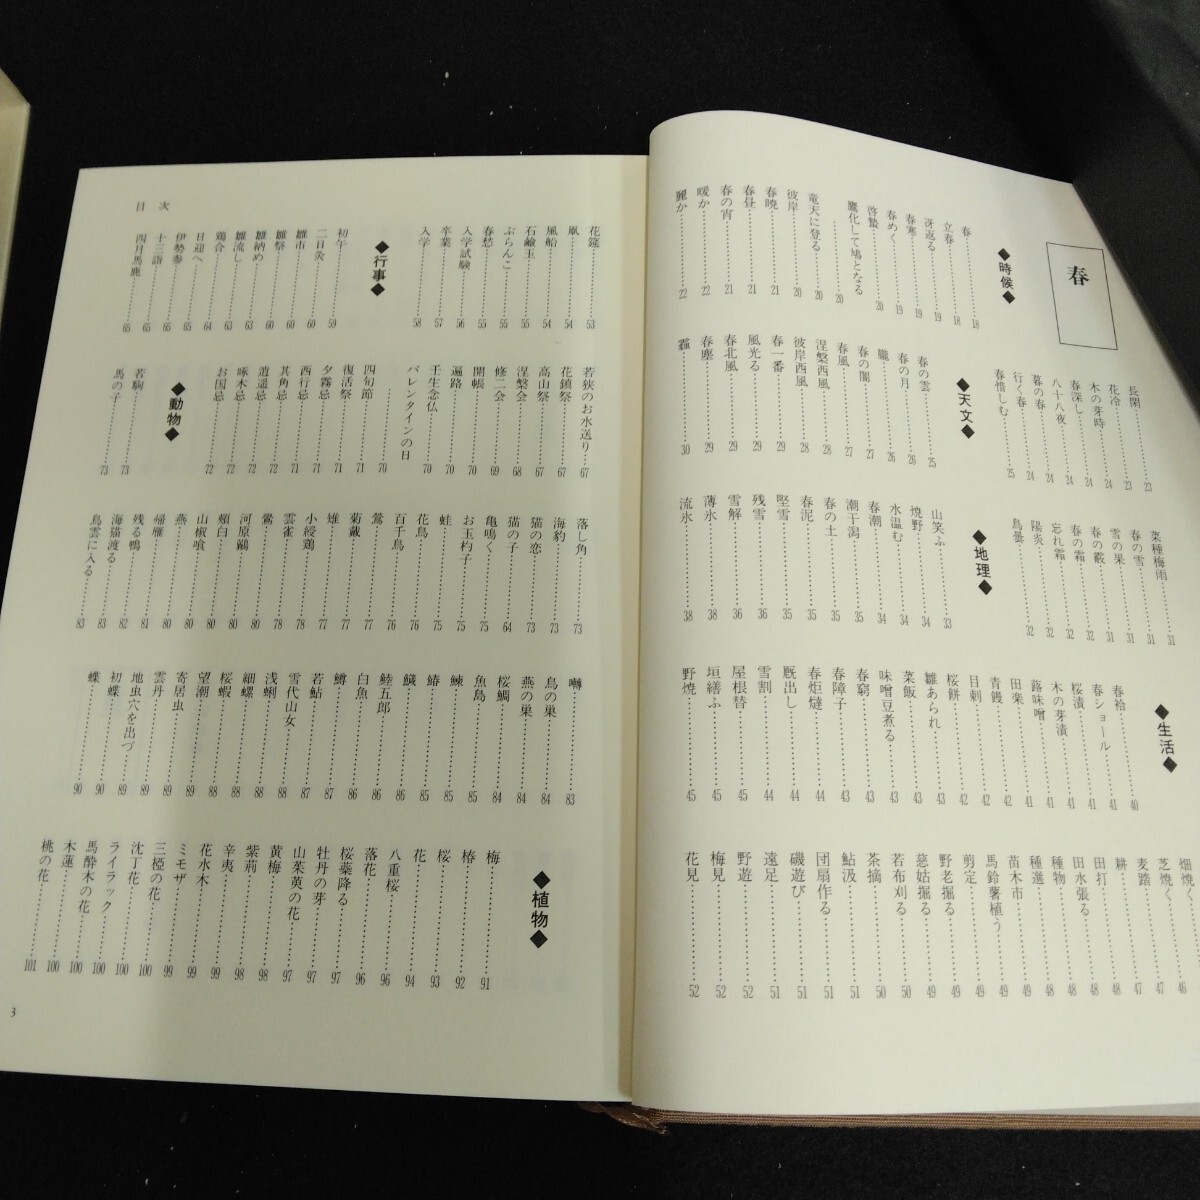 春
◆時候◆
春……18
立春……18
冴返る……19
春寒……19
春めく……19
啓蟄……20
鷹化して鳩となる……20
竜天に登る……20
彼岸……20
春暁……21
春昼……21
春の宵……21
暖か……22
麗か……22
長閑……23
花冷……23
木の芽時……24
春深し……24
八十八夜……24
暮の春……24
行く春……24
春惜しむ……25
◆天文◆
春の雲……25
春の月……26
朧……26
春の闇……27
春風……27
涅槃西風……28
彼岸西風……28
春一番……29
風光る……29
春北風……29
春塵……29
霾……30
菜種梅雨……31
春の雪……31
雪の果……31
春の霰……31
春の霜……32
忘れ霜……32
陽炎……32
鳥曇……32
◆地理◆
山笑ふ……33
焼野……34
水温む……34
春潮……34
潮干潟……35
春の土……35
春泥……35
堅雪……35
残雪……36
雪解……36
薄氷……38
流氷……38
◆生活◆
春袷……40
春ショール……41
桜漬……41
木の芽漬……41
蕗味噌……41
田楽……41
青饅……42
目刺……42
桜餅……42
雛あられ……43
菜飯……43
味噌豆煮る……43
春窮……43
春障子……43
春炬燵……44
厩出し……44
雪割……44
屋根替……45
垣繕ふ……45
野焼……45
畑焼く……46
芝焼く……47
麦踏……47
耕……48
田打……48
田水張る……48
種物……48
種選……49
苗木市……49
馬鈴薯植う……49
剪定……49
野老掘る……49
慈姑掘る……49
若布刈る……50
茶摘……50
鮎汲……51
団扇作る……51
磯遊び……51
遠足……51
野遊……52
梅見……52
花見……52
目次
花筵……53
凧……54
風船……54
石鹼玉……55
ぶらんこ……55
春愁……55
入学試験……56
卒業……57
入学……58
◆行事◆
初午……59
二日灸……60
雛市……60
雛祭……60
雛納め……63
雛流し……63
鶏合……64
日迎へ……65
伊勢参……65
十三詣……65
四月馬鹿……65
若狭のお水送り……67
花鎮祭……67
高山祭……67
涅槃会……68
修二会……69
開帳……70
遍路……70
壬生念仏……70
バレンタインの日……70
四旬節……71
復活祭……71
夕霧忌……71
西行忌……71
其角忌……72
逍遥忌……72
啄木忌……72
お国忌……72
◆動物◆
若駒……73
馬の子……73
落し角……73
海豹……73
猫の恋……73
猫の子……64
亀鳴く……75
お玉杓子……75
蛙……75
花鳥……76
百千鳥……76
鶯……77
菊戴……77
雉……77
小綬鶏……78
雲雀……78
鷽……80
河原鶸……80
頬白……80
山椒喰……80
燕……80
帰雁……81
残る鴨……82
海猫渡る……83
鳥雲に入る……83
囀……83
鳥の巣……84
燕の巣……84
桜鯛……84
魚島……85
鰊……85
鰆……85
鱵……86
鯥五郎……86
白魚……86
鱒……87
若鮎……87
雪代山女……88
浅蜊……88
細螺……88
桜蝦……88
望潮……89
寄居虫……89
雲丹……89
地虫穴を出づ……89
初蝶……90
蝶……90
◆植物◆
梅……91
椿……92
桜……93
花……94
八重桜……96
落花……96
桜蘂降る……97
牡丹の芽……97
山茱萸の花……97
黄梅……98
紫荊……98
辛夷……99
花水木……99
ミモザ……99
三椏の花……100
沈丁花……100
ライラック……100
馬酔木の花……100
木蓮……100
桃の花……101
3